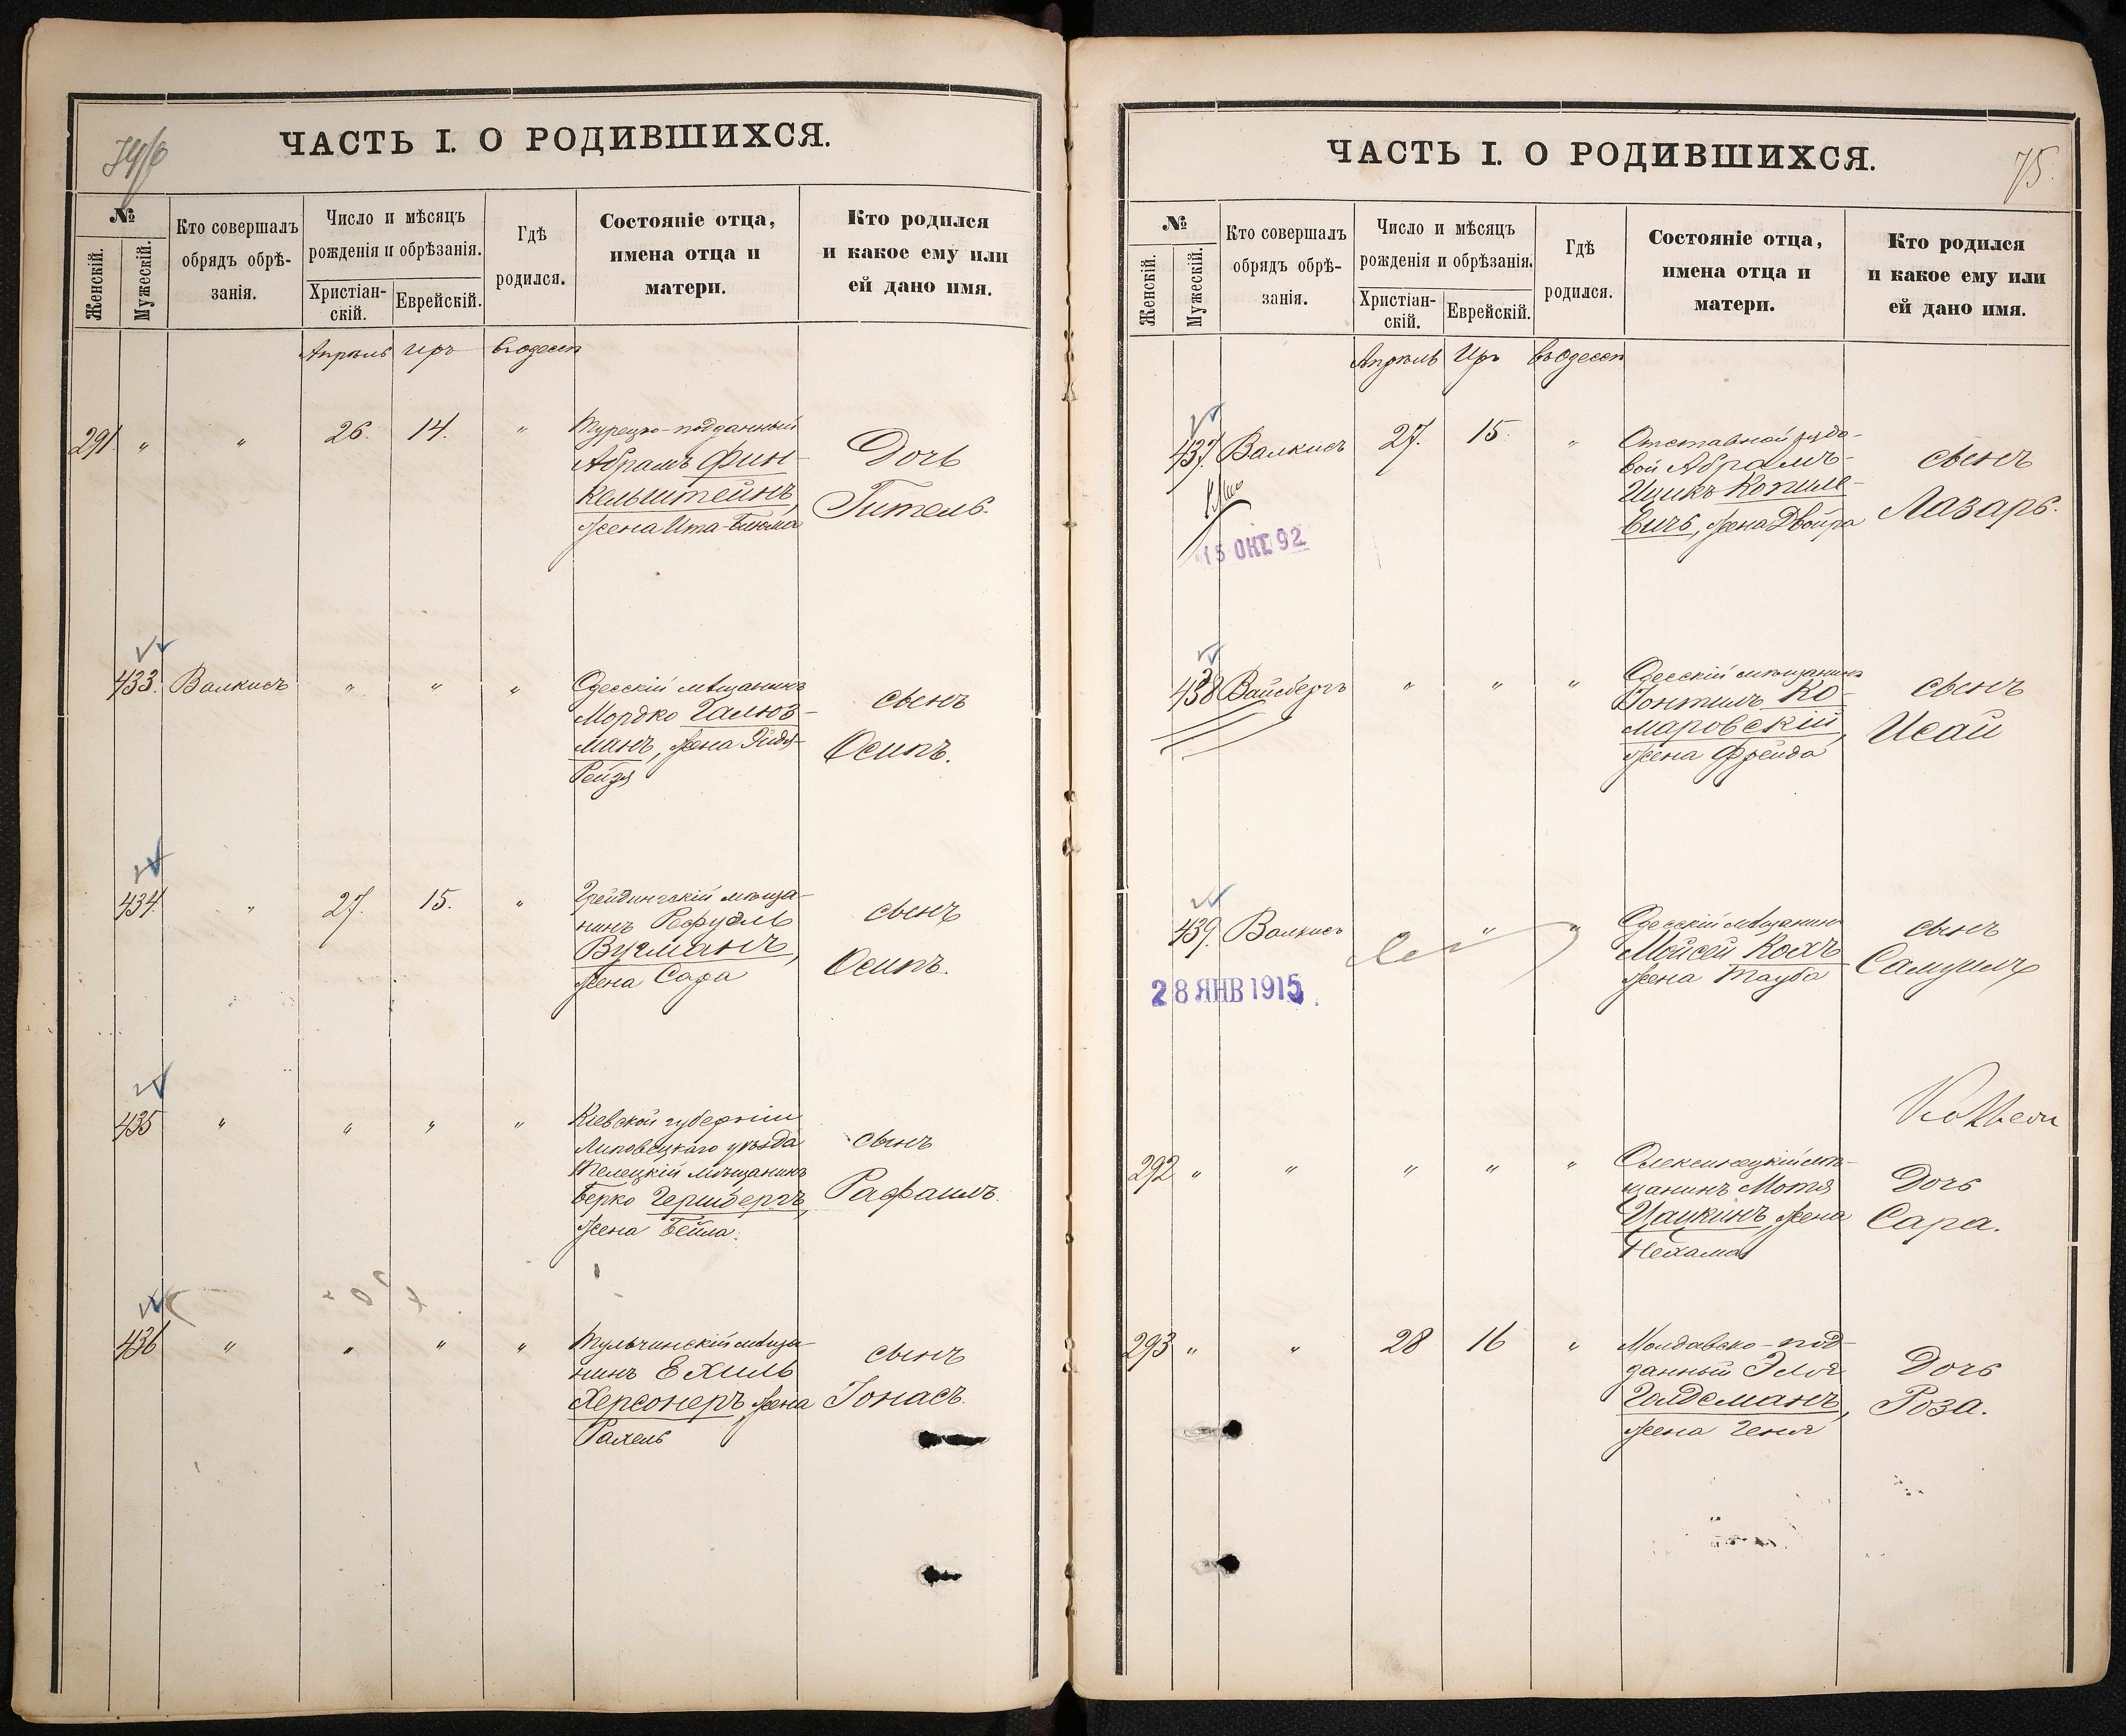 ЧАСТЬ I. О РОДИВШИХСЯ.
№
Женскій.
Мужескій.
Кто совершалъ
обрядъ обрѣ-
занія.
Число и мѣсяцъ
рожденія и обрѣзанія.
Христіан-
скій.
Еврейскій.
Гдѣ
родился.
Состояніе отца,
имена отца и
матери.
Кто родился
и какое ему или
ей дано имя.
Апрѣль Иръ въ Одессѣ
291. " " 26. 14. "
Турецко-подданный
Абрамъ Фин-
кельштейнъ,
жена Ита-Блюма
Дочь
Гитель.
433. Валкисъ " " "
Одесскій мѣщанинъ
Мордко Галюз-
манъ, жена Эйдя-
Рейзя
сынъ
Осипъ.
434. " 27. 15. "
мѣща-
нинъ Рефуэль
Вугманъ,
жена Сара
сынъ
Осипъ.
435 " " " "
Кіевской губерніи
Липовецкаго уѣзда
мѣщанинъ
Берко Гершбергъ,
жена Бейла.
сынъ
Рафаилъ.
436 " " " "
Тульчинскій мѣща-
нинъ Ехиль
Херсонеръ, жена
Рахель
сынъ
Іонасъ.
ЧАСТЬ I. О РОДИВШИХСЯ.
75.
№
Женскій.
Мужескій.
Кто совершалъ
обрядъ обрѣ-
занія.
Число и мѣсяцъ
рожденія и обрѣзанія.
Христіан-
скій.
Еврейскій.
Гдѣ
родился.
Состояніе отца,
имена отца и
матери.
Кто родился
и какое ему или
ей дано имя.
Апрѣль Иръ въ Одессѣ
437. Валкисъ 27. 15. "
Отставной рядо-
вой Абрамъ-
Ицикъ Копиле-
вичъ, жена Двойра
сынъ
Лазарь.
15 ОКТ. 92
438 Вайсбергъ " " "
Одесскій мѣщанинъ
Іонтилъ Ко-
маровскій,
жена Фрейда
сынъ
Исай
439. Валкисъ " "
Одесскій мѣщанинъ
Мойсей Кохъ
жена Тауба
сынъ
Самуилъ
28 ЯНВ 1915.
292 " " " " "
мѣ-
щанинъ Мотя
Цацкинъ, жена
Нехама
Дочь
Сара.
293 " " 28 16 "
Молдавско-под-
данный Эля
Голдсманъ,
жена Геня
Дочь
Роза.